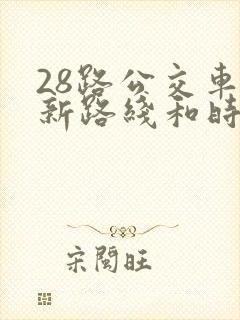 28路公交車
新路綫和時
宋閩旺